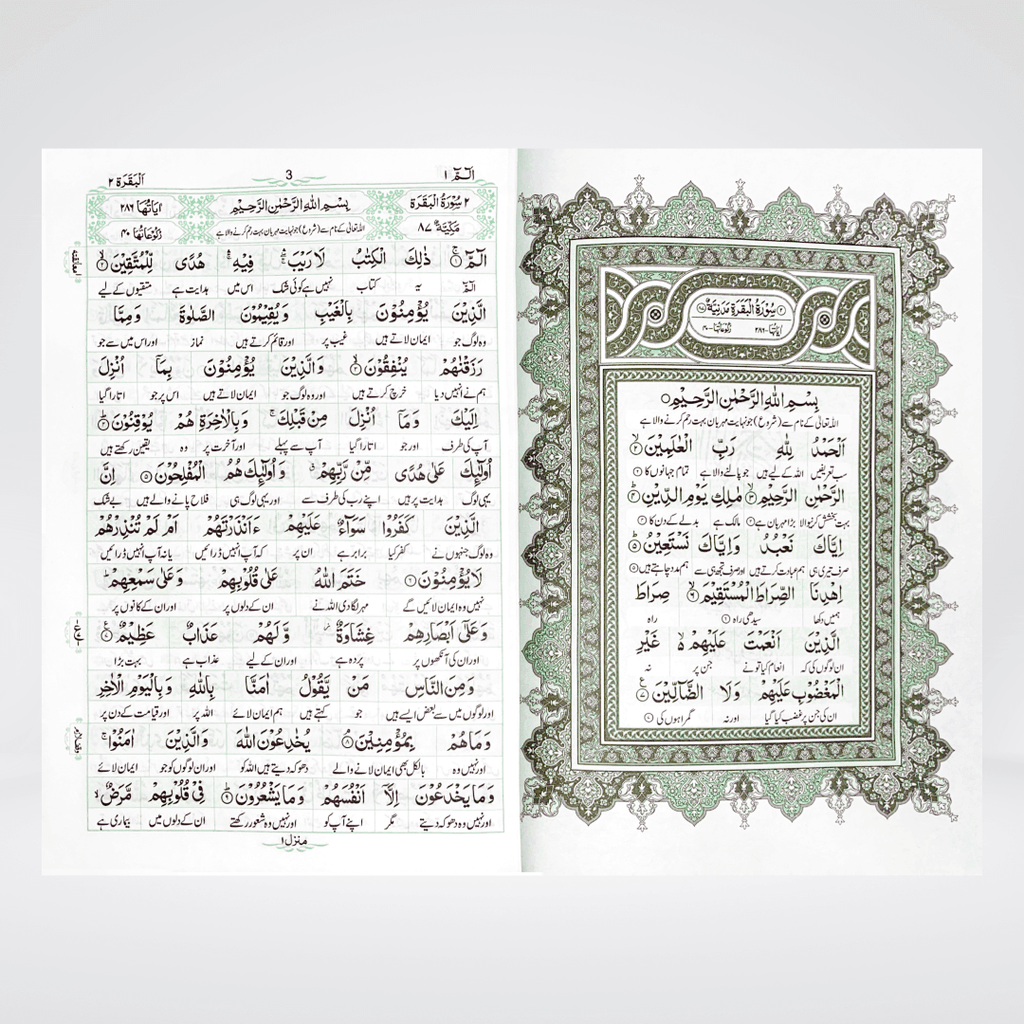 سُوْرَةُ الْبَقَرَةِ مَدَنِيَّةٌ
اٰيَاتُهَا-٢٨٦ رُكُوْعَاتُهَا-٤٠
بِسْمِ اللهِ الرَّحْمٰنِ الرَّحِيْمِ
اللہ تعالیٰ کے نام سے (شروع) جو نہایت مہربان بہت رحم کرنے والا ہے
اَلْحَمْدُ لِلّٰهِ رَبِّ الْعٰلَمِيْنَ
سب تعریفیں اللہ کے لیے ہیں جو پالنے والا ہے تمام جہانوں کا
الرَّحْمٰنِ الرَّحِيْمِ مٰلِكِ يَوْمِ الدِّيْنِ
بہت بخشش کرنیوالا بڑا مہربان ہے مالک ہے بدلے کے دن کا
اِيَّاكَ نَعْبُدُ وَاِيَّاكَ نَسْتَعِيْنُ
صرف تیری ہی ہم عبادت کرتے ہیں اور صرف تجھ ہی سے ہم مدد چاہتے ہیں
اِهْدِنَا الصِّرَاطَ الْمُسْتَقِيْمَ صِرَاطَ
ہمیں دکھا سیدھی راہ راہ
الَّذِيْنَ اَنْعَمْتَ عَلَيْهِمْ غَيْرِ
ان لوگوں کی کہ انعام کیا تو نے جن پر نہ
الْمَغْضُوْبِ عَلَيْهِمْ وَلَا الضَّآلِّيْنَ
ان کی جن پر غضب کیا گیا اور نہ گمراہوں کی
الٓمّٓ ١ 3 اَلْبَقَرَة ٢
٢ سُوْرَةُ الْبَقَرَةِ بِسْمِ اللهِ الرَّحْمٰنِ الرَّحِيْمِ اٰيَاتُهَا ٢٨٦
٨٧ اللہ تعالیٰ کے نام سے (شروع) جو نہایت مہربان بہت رحم کرنے والا ہے رُكُوْعَاتُهَا ٤٠
الٓمّٓ ذٰلِكَ الْكِتٰبُ لَا رَيْبَ فِيْهِ هُدًى لِّلْمُتَّقِيْنَ
الٓمّٓ یہ کتاب نہیں ہے کوئی شک اس میں ہدایت ہے متقیوں کے لیے
الَّذِيْنَ يُؤْمِنُوْنَ بِالْغَيْبِ وَيُقِيْمُوْنَ الصَّلٰوةَ وَمِمَّا
وہ لوگ جو ایمان لاتے ہیں غیب پر اور قائم کرتے ہیں نماز اور اس میں سے جو
رَزَقْنٰهُمْ يُنْفِقُوْنَ وَالَّذِيْنَ يُؤْمِنُوْنَ بِمَآ اُنْزِلَ
ہم نے انہیں دیا خرچ کرتے ہیں اور وہ لوگ جو ایمان لاتے ہیں اس پر جو اتارا گیا
اِلَيْكَ وَمَآ اُنْزِلَ مِنْ قَبْلِكَ وَبِالْاٰخِرَةِ هُمْ يُوْقِنُوْنَ
آپ کی طرف اور جو اتارا گیا آپ سے پہلے اور آخرت پر وہ یقین رکھتے ہیں
اُولٰٓئِكَ عَلٰى هُدًى مِّنْ رَّبِّهِمْ وَاُولٰٓئِكَ هُمُ الْمُفْلِحُوْنَ اِنَّ
یہی لوگ ہدایت پر ہیں اپنے رب کی طرف سے اور یہی لوگ ہی فلاح پانے والے ہیں بے شک
الَّذِيْنَ كَفَرُوْا سَوَآءٌ عَلَيْهِمْ ءَاَنْذَرْتَهُمْ اَمْ لَمْ تُنْذِرْهُمْ
وہ لوگ جنہوں نے کفر کیا برابر ہے ان پر کہ آپ انہیں ڈرائیں یا نہ آپ انہیں ڈرائیں
لَا يُؤْمِنُوْنَ خَتَمَ اللهُ عَلٰى قُلُوْبِهِمْ وَعَلٰى سَمْعِهِمْ
نہیں وہ ایمان لائیں گے مہر لگا دی اللہ نے ان کے دلوں پر اور ان کے کانوں پر
وَعَلٰٓى اَبْصَارِهِمْ غِشَاوَةٌ وَّلَهُمْ عَذَابٌ عَظِيْمٌ
اور ان کی آنکھوں پر پردہ ہے اور ان کے لیے عذاب ہے بہت بڑا
وَمِنَ النَّاسِ مَنْ يَّقُوْلُ اٰمَنَّا بِاللهِ وَبِالْيَوْمِ الْاٰخِرِ
اور لوگوں میں سے بعض ایسے ہیں جو کہتے ہیں ہم ایمان لائے اللہ پر اور قیامت کے دن پر
وَمَا هُمْ بِمُؤْمِنِيْنَ يُخٰدِعُوْنَ اللهَ وَالَّذِيْنَ اٰمَنُوْا
اور نہیں وہ بالکل بھی ایمان لانے والے دھوکہ دیتے ہیں اللہ کو اور ان لوگوں کو جو ایمان لائے
وَمَا يَخْدَعُوْنَ اِلَّآ اَنْفُسَهُمْ وَمَا يَشْعُرُوْنَ فِيْ قُلُوْبِهِمْ مَّرَضٌ
اور نہیں وہ دھوکہ دیتے مگر اپنے آپ کو اور نہیں وہ شعور رکھتے ان کے دلوں میں بیماری ہے
منزل ١